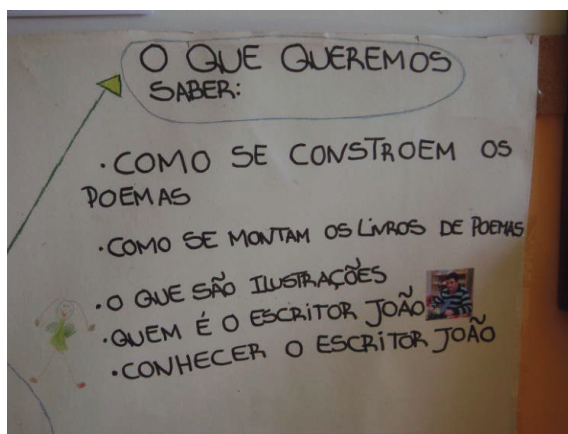 O QUE QUEREMOS
SABER:
·COMO SE CONSTROEM OS
POEMAS
·COMO SE MONTAM OS LIVROS DE POEMAS
·O QUE SÃO ILUSTRAÇÕES
·QUEM É O ESCRITOR JOÃO
·CONHECER O ESCRITOR JOÃO